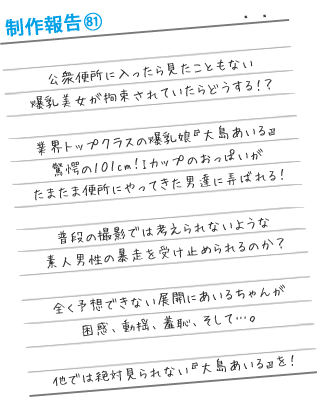 制作報告81
公衆便所に入ったら見たこともない
爆乳美女が拘束されていたらどうする!?
業界トップクラスの爆乳娘『大島あいる』
驚愕の101cm!Iカップのおっぱいが
たまたま便所にやってきた男達に弄ばれる!
普段の撮影では考えられないような
素人男性の暴走を受け止められるのか?
全く予想できない展開にあいるちゃんが
困惑、動揺、羞恥、そして…。
他では絶対見られない『大島あいる』を!